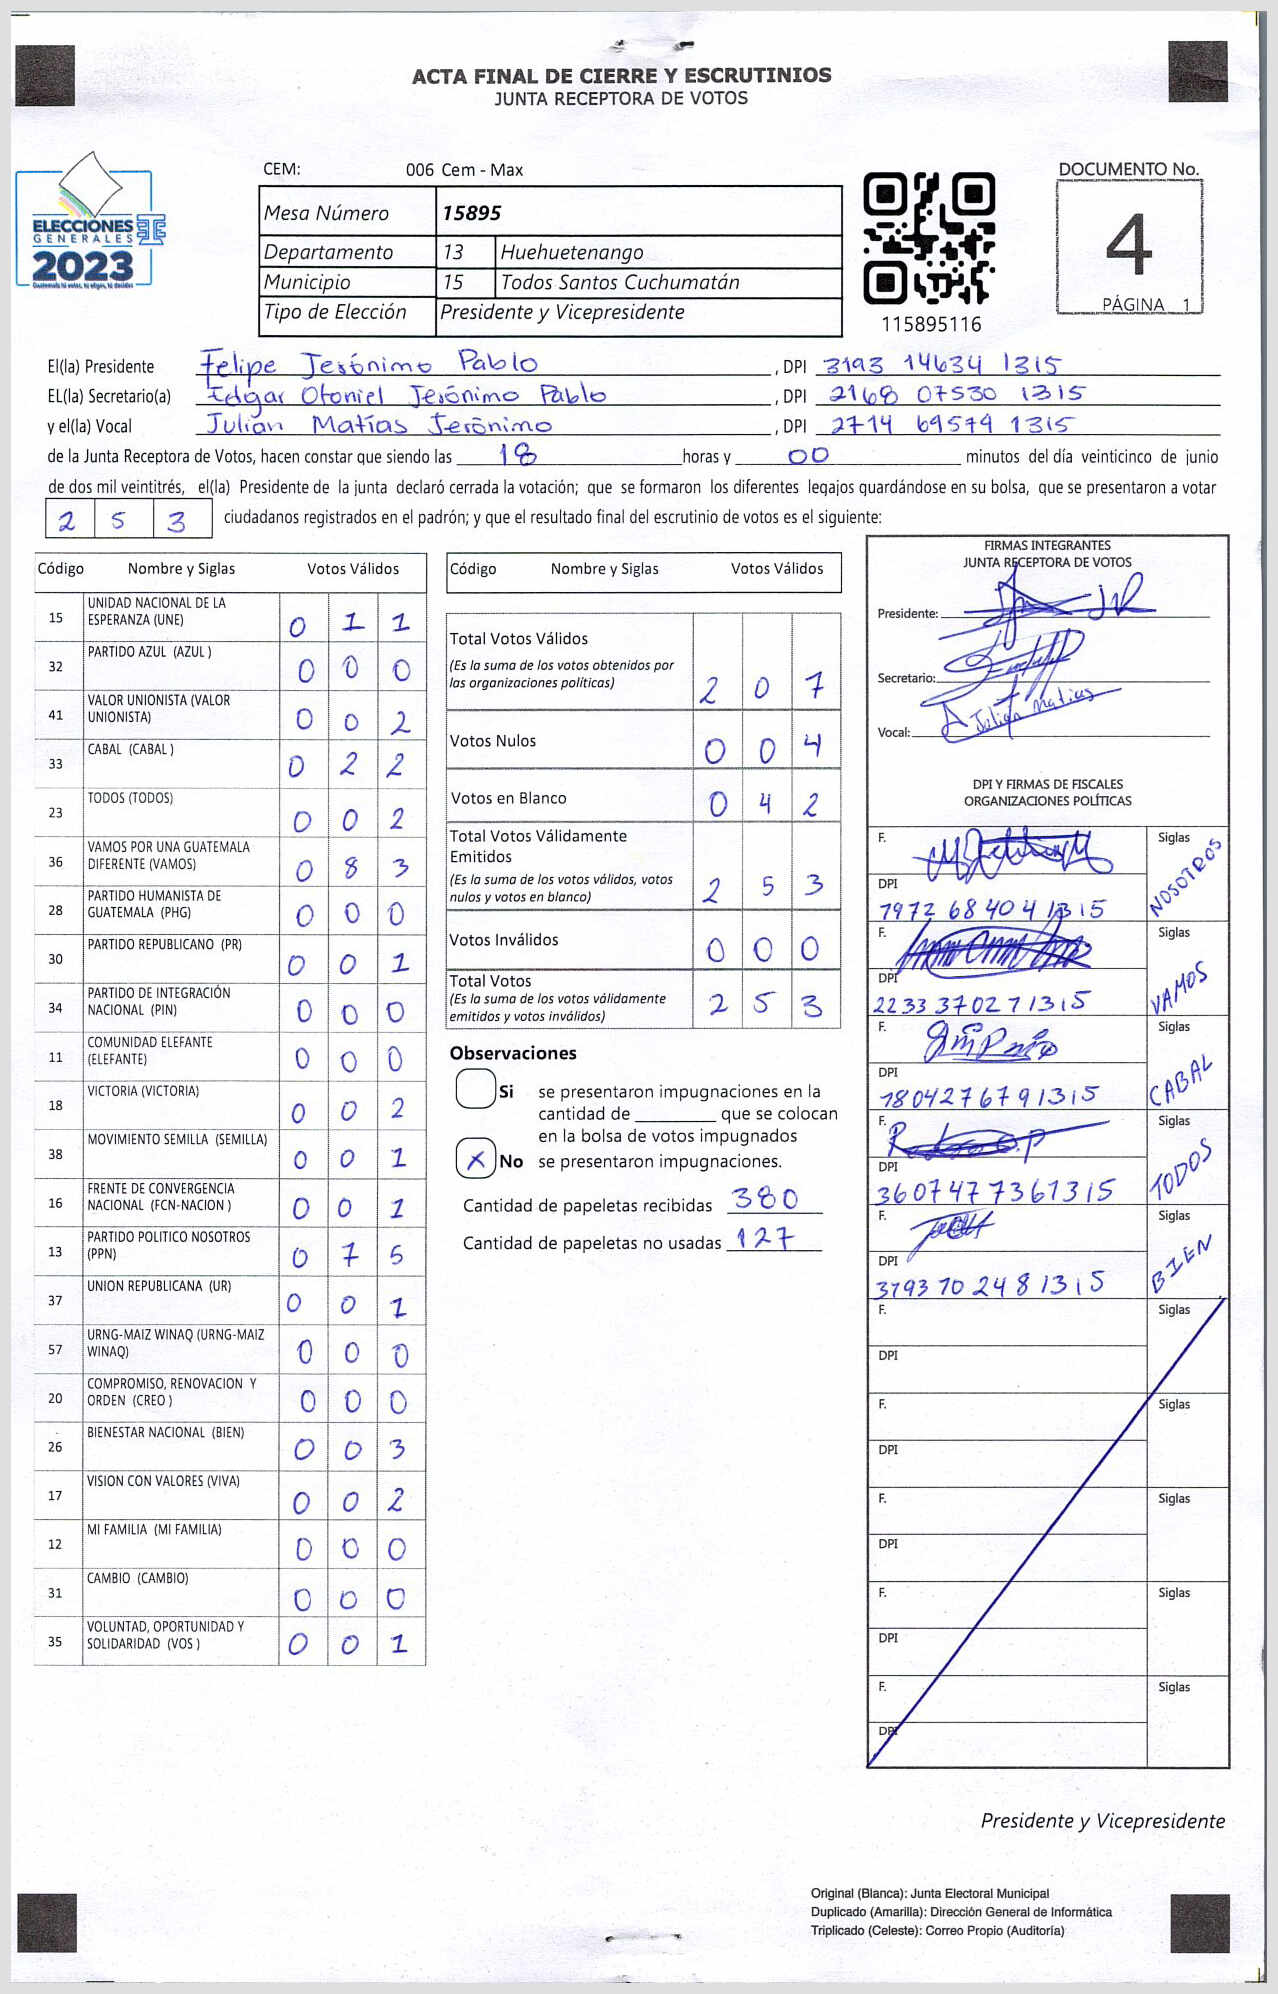 ACTA FINAL DE CIERRE Y ESCRUTINIOS
JUNTA RECEPTORA DE VOTOS
ELECCIONES
GENERALES
2023
CEM: 006 Cem - Max
Mesa Número 15895
Departamento 13 Huehuetenango
Municipio 15 Todos Santos Cuchumatán
Tipo de Elección Presidente y Vicepresidente
115895116
DOCUMENTO No.
4
PÁGINA 1
El(la) Presidente Felipe Jerónimo Pablo, DPI 3193 14634 1315
EL(la) Secretario(a) Edgar Otoniel Jerónimo Pablo, DPI 2168 07530 1315
y el(la) Vocal Julián Matías Jerónimo, DPI 2714 69579 1315
de la Junta Receptora de Votos, hacen constar que siendo las 18 horas y 00 minutos del día veinticinco de junio
de dos mil veintitrés, el(la) Presidente de la junta declaró cerrada la votación; que se formaron los diferentes legajos guardándose en su bolsa, que se presentaron a votar
2 5 3 ciudadanos registrados en el padrón; y que el resultado final del escrutinio de votos es el siguiente:
Código Nombre y Siglas Votos Válidos
15 UNIDAD NACIONAL DE LA ESPERANZA (UNE) 0 1 1
32 PARTIDO AZUL (AZUL ) 0 0 0
41 VALOR UNIONISTA (VALOR UNIONISTA) 0 0 2
33 CABAL (CABAL ) 0 2 2
23 TODOS (TODOS) 0 0 2
36 VAMOS POR UNA GUATEMALA DIFERENTE (VAMOS) 0 8 3
28 PARTIDO HUMANISTA DE GUATEMALA (PHG) 0 0 0
30 PARTIDO REPUBLICANO (PR) 0 0 1
34 PARTIDO DE INTEGRACIÓN NACIONAL (PIN) 0 0 0
11 COMUNIDAD ELEFANTE (ELEFANTE) 0 0 0
18 VICTORIA (VICTORIA) 0 0 2
38 MOVIMIENTO SEMILLA (SEMILLA) 0 0 1
16 FRENTE DE CONVERGENCIA NACIONAL (FCN-NACION ) 0 0 1
13 PARTIDO POLITICO NOSOTROS (PPN) 0 7 5
37 UNION REPUBLICANA (UR) 0 0 1
57 URNG-MAIZ WINAQ (URNG-MAIZ WINAQ) 0 0 0
20 COMPROMISO, RENOVACION Y ORDEN (CREO ) 0 0 0
26 BIENESTAR NACIONAL (BIEN) 0 0 3
17 VISION CON VALORES (VIVA) 0 0 2
12 MI FAMILIA (MI FAMILIA) 0 0 0
31 CAMBIO (CAMBIO) 0 0 0
35 VOLUNTAD, OPORTUNIDAD Y SOLIDARIDAD (VOS ) 0 0 1
Código Nombre y Siglas Votos Válidos
Total Votos Válidos
(Es la suma de los votos obtenidos por
las organizaciones políticas) 2 0 7
Votos Nulos 0 0 4
Votos en Blanco 0 4 2
Total Votos Válidamente
Emitidos
(Es la suma de los votos válidos, votos
nulos y votos en blanco) 2 5 3
Votos Inválidos 0 0 0
Total Votos
(Es la suma de los votos válidamente
emitidos y votos inválidos) 2 5 3
Observaciones
Si se presentaron impugnaciones en la
cantidad de ________ que se colocan
en la bolsa de votos impugnados
X No se presentaron impugnaciones.
Cantidad de papeletas recibidas 380
Cantidad de papeletas no usadas 127
FIRMAS INTEGRANTES
JUNTA RECEPTORA DE VOTOS
Presidente:
Secretario:
Vocal: Julián Matías
DPI Y FIRMAS DE FISCALES
ORGANIZACIONES POLÍTICAS
F. Siglas NOSOTROS
DPI
1972 68404 1315
F. Siglas VAMOS
DPI
2233 37027 1315
F. Siglas CABAL
DPI
1804276791315
F. Siglas TODOS
DPI
3607477361315
F. Siglas BIEN
DPI
3793 70248 1315
F. Siglas
DPI
F. Siglas
DPI
F. Siglas
DPI
F. Siglas
DPI
F. Siglas
DPI
Presidente y Vicepresidente
Original (Blanca): Junta Electoral Municipal
Duplicado (Amarilla): Dirección General de Informática
Triplicado (Celeste): Correo Propio (Auditoría)